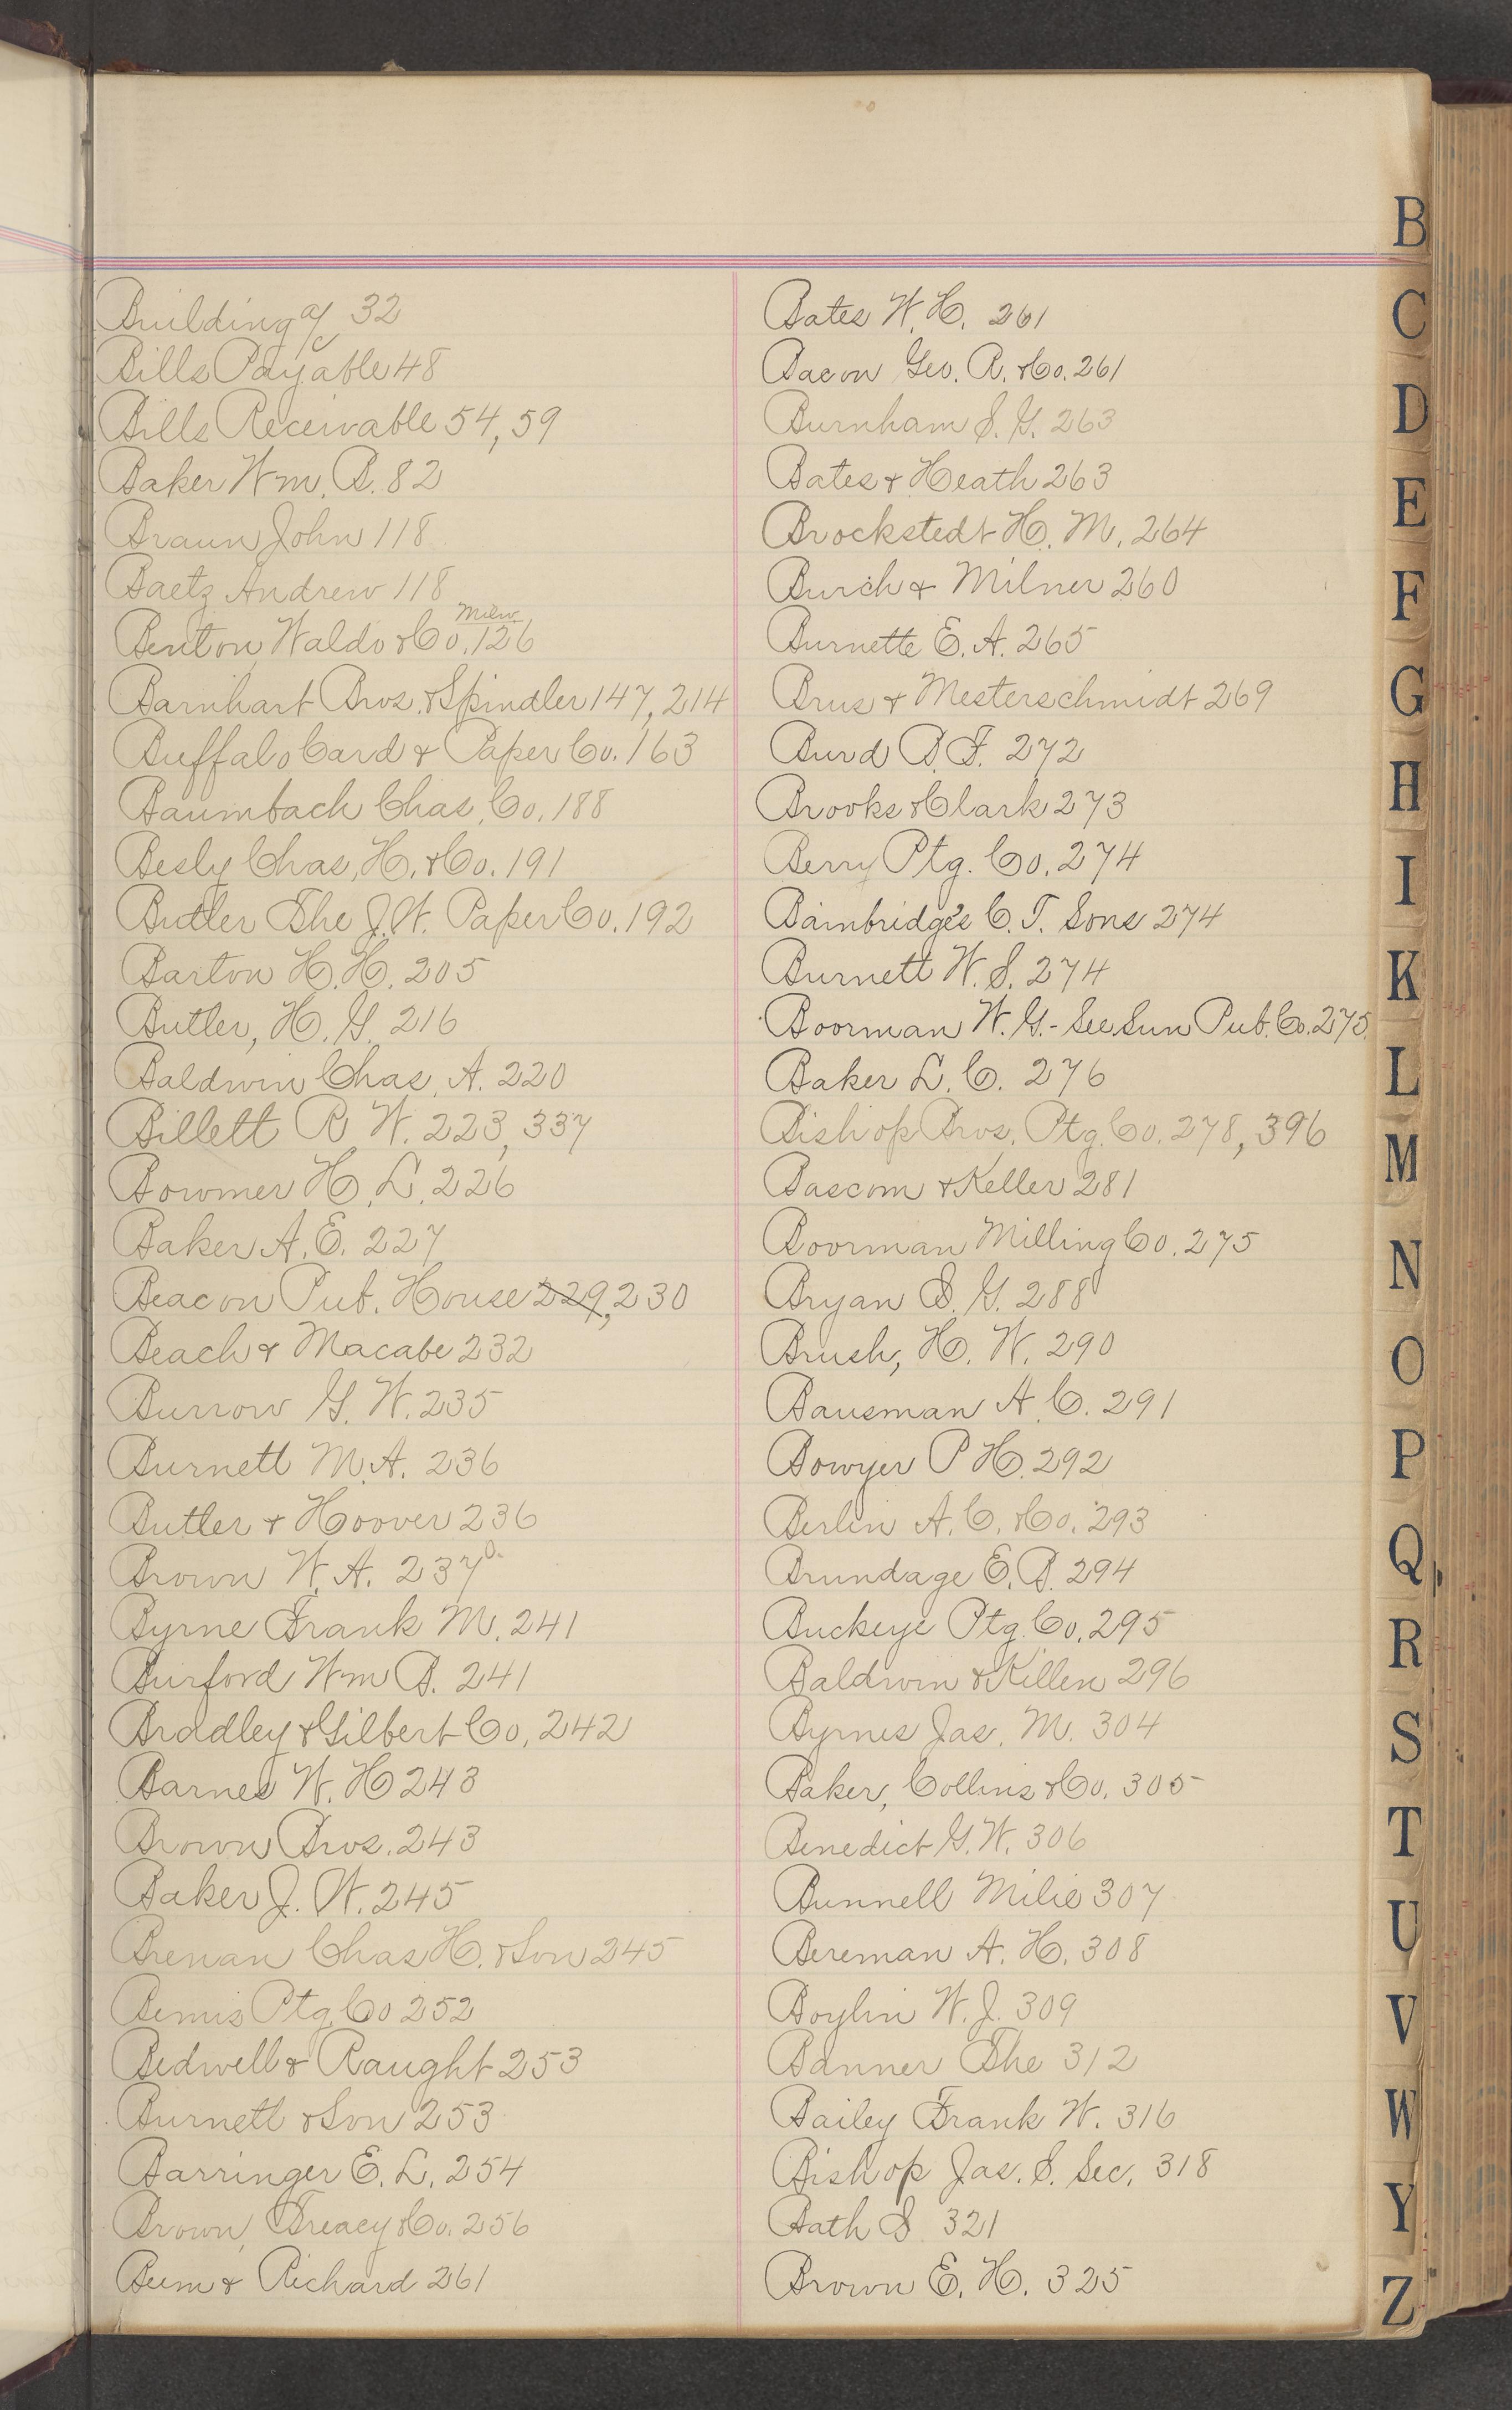 Building a/c 32
Bills Payable 48
Bills Receivable 54, 59
Baker Wm. B. 82
Braun John 118
Baetz Andrew 118
Milw.
Benton Waldo & Co. 126
Barnhart Bros. & Spindler 147, 214
Buffalo Card & Paper Co. 163
Baumbach Chas. Co. 188
Besly Chas. H. & Co. 191
Butler The J.W. Paper Co. 192
Barton H.H. 205
Butler, H.G. 216
Baldwin Chas. A. 220
Billett R W. 223, 337
Bowmer H.L. 226
Baker A.E. 227
Beacon Pub. House 229, 230
Beach & Macabe 232
Burrow G.W. 235
Burnett M.A. 236
Butler & Hoover 236
Brown W.A. 237
Byrne Frank M. 241
Burford Wm B. 241
Bradley & Gilbert Co. 242
Barnes W.H 243
Brown Bros. 243
Baker J.W. 245
Brenan Chas H. & Son 245
Bemis Ptg. Co 252
Bedwell & Raught 253
Burnett & Son 253
Barringer E.L. 254
Brown, Treacy & Co. 256
Beem & Richard 261
Bates W.H. 261
Bacon Geo. R. & Co. 261
Burnham S.G. 263
Bates & Heath 263
Brockstedt H.M. 264
Burch & Milner 260
Burnette E.A. 265
Brus & Mesterschmidt 269
Burd D.F. 272
Brooks & Clark 273
Berry Ptg. Co. 274
Bainbridge's C.T. Sons 274
Burnett W.S. 274
Boorman W.G. - See Sun Pub. Co. 275
Baker L.C. 276
Bishop Bros. Ptg. Co. 278, 396
Bascom & Keller 281
Boorman Milling Co. 275
Bryan S.G. 288
Brush, H.W. 290
Bausman A.C. 291
Bowyer P H. 292
Berlin A.C. & Co. 293
Brundage E.B. 294
Buckeye Ptg. Co. 295
Baldwin & Killen 296
Byrnes Jas. M. 304
Baker, Collins & Co. 305
Benedict G.W. 306
Bunnell Milie 307
Bereman A.H. 308
Boylin W.J. 309
Banner The 312
Bailey Frank W. 316
Bishop Jas. S. Sec. 318
Bath S. 321
Brown E.H. 325
B
C
D
E
F
G
H
I
K
L
M
N
O
P
Q
R
S
T
U
V
W
Y
Z